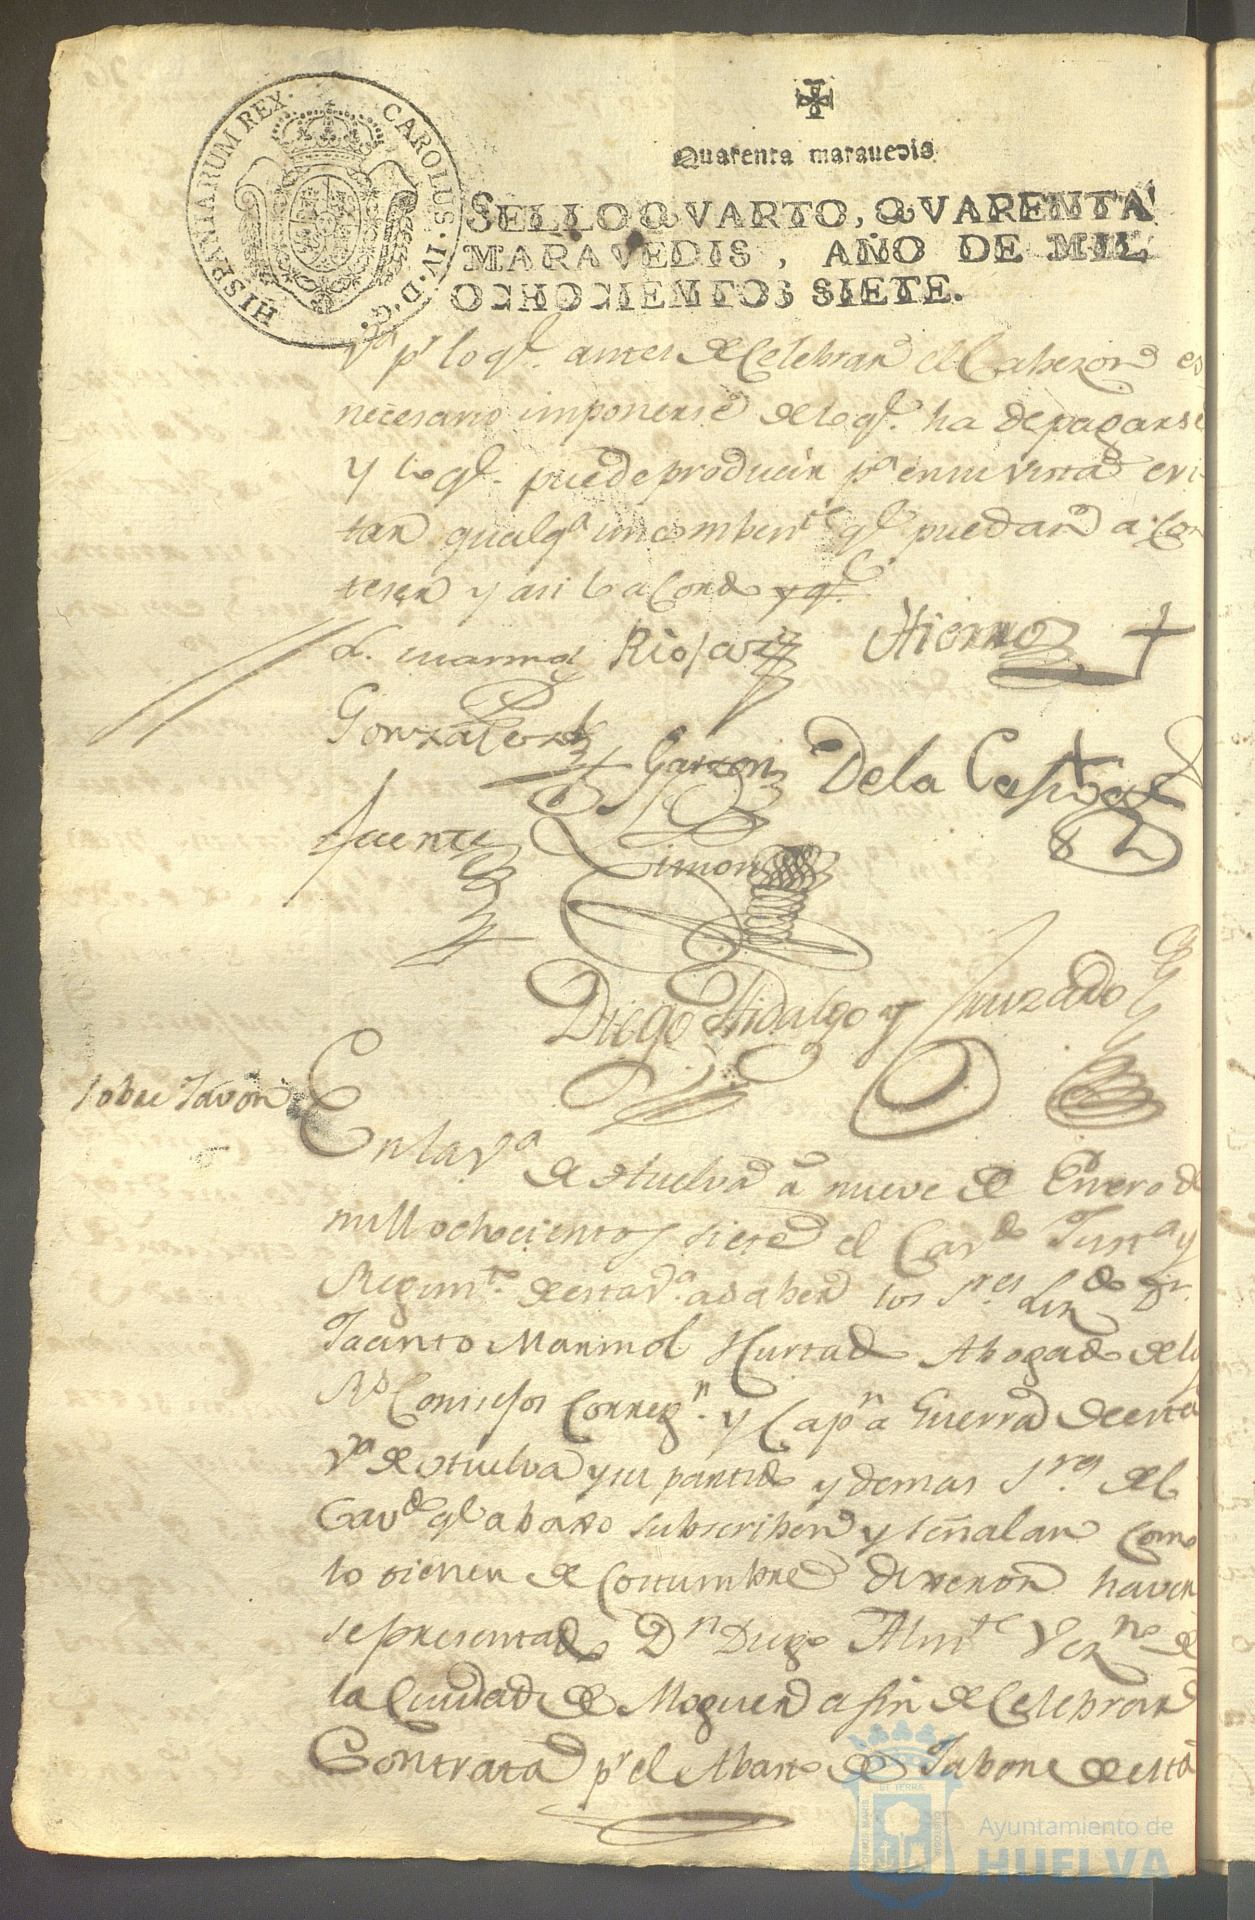 HISPANIARUM REX. CAROLUS. IV. D. G.
Quarenta maravedis
SELLO QVARTO, QVARENTA
MARAVEDIS, AÑO DE MIL
OCHOCIENTOS SIETE.
Vª pr lo ql. antes de Celebrar el Cabezon es
necesario imponerse de lo ql. ha de pagarse
y lo ql. puede producir pª en su vista evi
tar qualqª incombente ql puedan a Con
teser y asi lo acordo y ql
L. Marmol Riojas Hierro
Gonzalez Garzon De la Castra
Fuente Limon
Diego Hidalgo y Cruzado
Sobre Javon
En la Vª de Huelva a nueve de Enero de
mill ochocientos siete el Cavdo Justª y
Regimto. de esta Vª. a saber los Sres Lizdo Dn.
Jacinto Marmol Hurtado Abogado de los
Rs Consejos Corregn. y Capn a Guerra de esta
Vª de Huelva y su partido y demas Sres del
Cavdo ql abaxo subscriben y señalan como
lo tienen de Costumbre dixeron haver
se presentado Dn Diego Almte Vezno de
la Ciudad de Moguer a fin de Celebrar
Contrata pr el Abasto de Jabon de esta
Ayuntamiento de
HUELVA